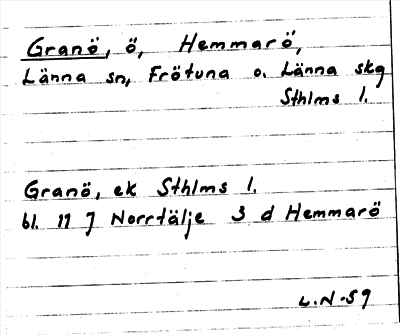 Granö, ö, Hemmarö,
Länna sn, Frötuna o. Länna skg
Sthlms l.
Granö, ek Sthlms l.
bl. 11 J Norrtälje 3 d Hemmarö
L.N-59